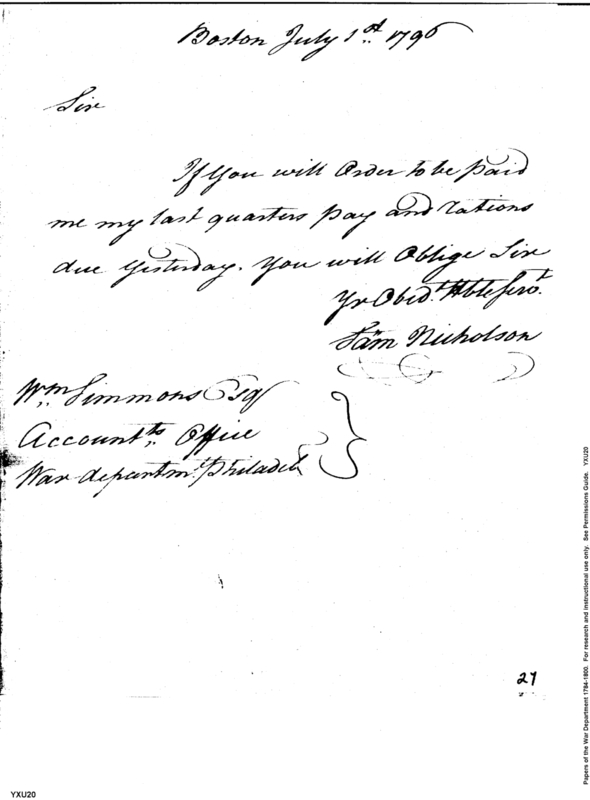 Boston July 1st 1796
Sir
If You will Order to be paid
me my last quarters pay and rations
due Yesterday. You will Oblige Sir
Yr Obedt. Hble Servt.
Sam Nicholson
Wm Simmons Esq
Accountts Office
War departmt. Philadel
27
YXU20
Papers of the War Department 1784-1800. For research and instructional use only. See Permissions Guide. YXU20